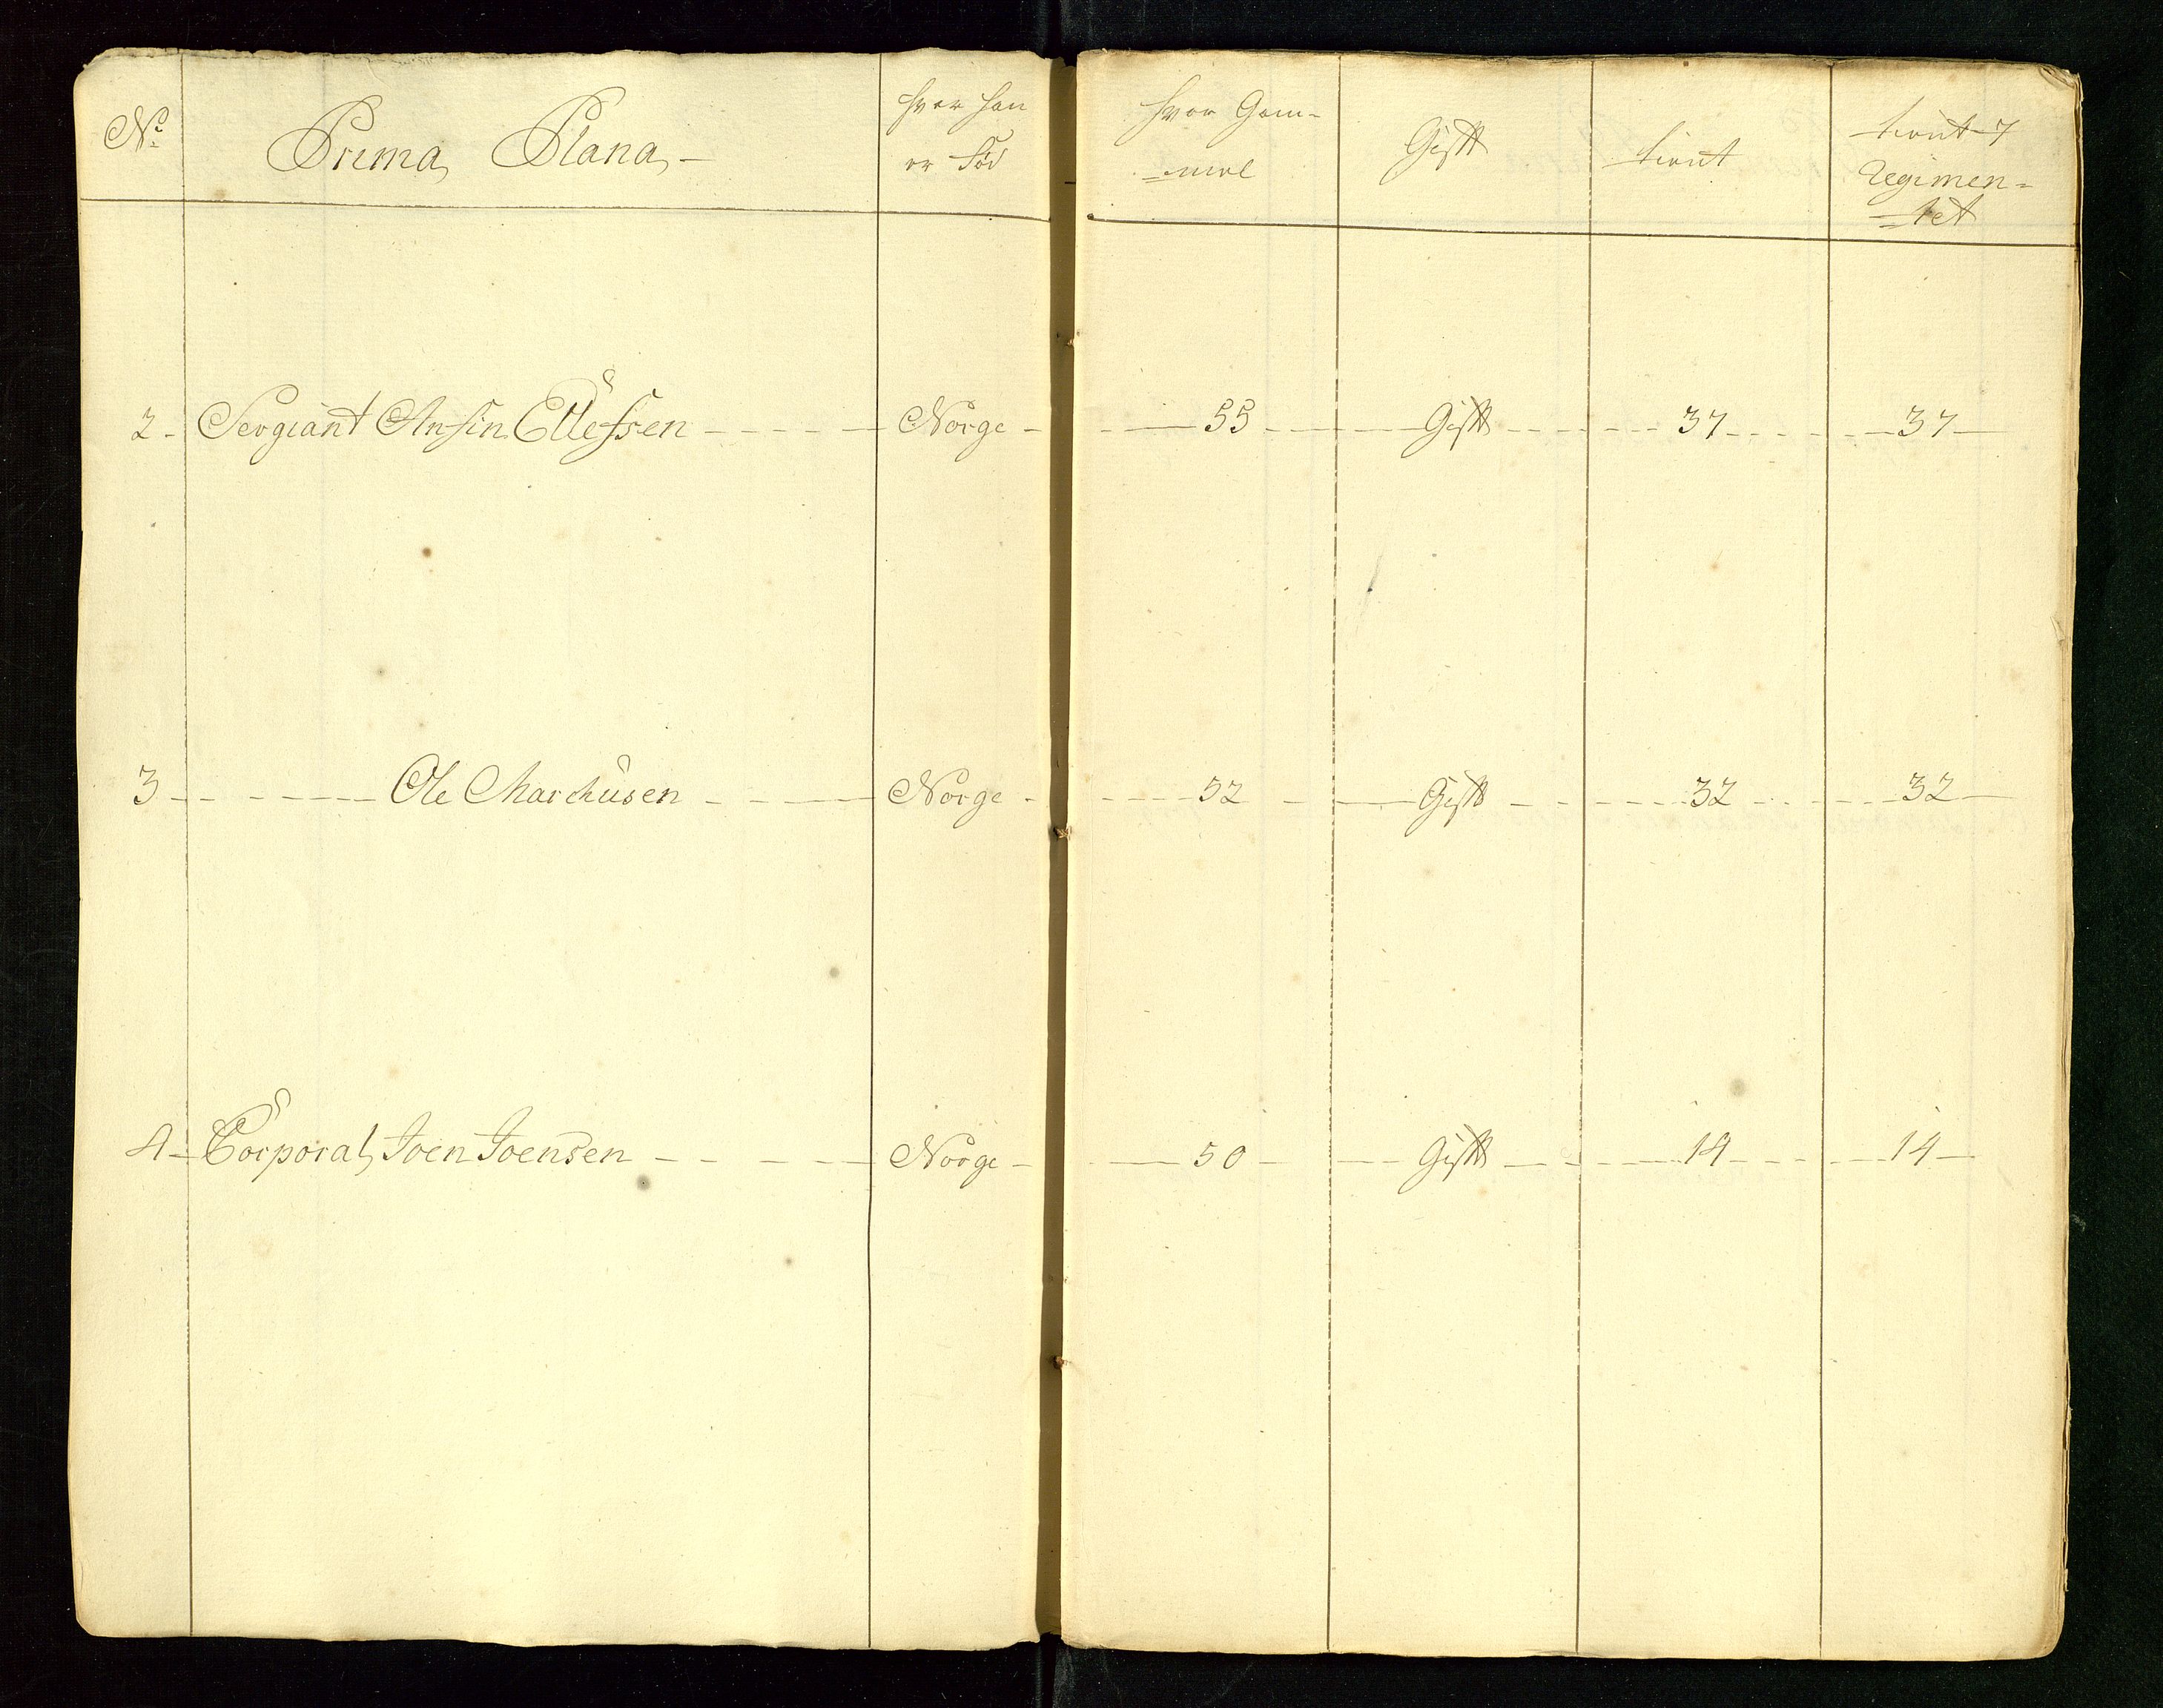 No Prima Plana hvor han er Föd hvor Gam= =mel Gift tient tient v Regimen= =tet
2 Sergiant Ansin Ellefsen Norge 55 Gift 37 37
3 Ole Marchusen Norge 52 Gift 32 32
4 Corporal Joen Joensen Norge 50 Gift 14 14